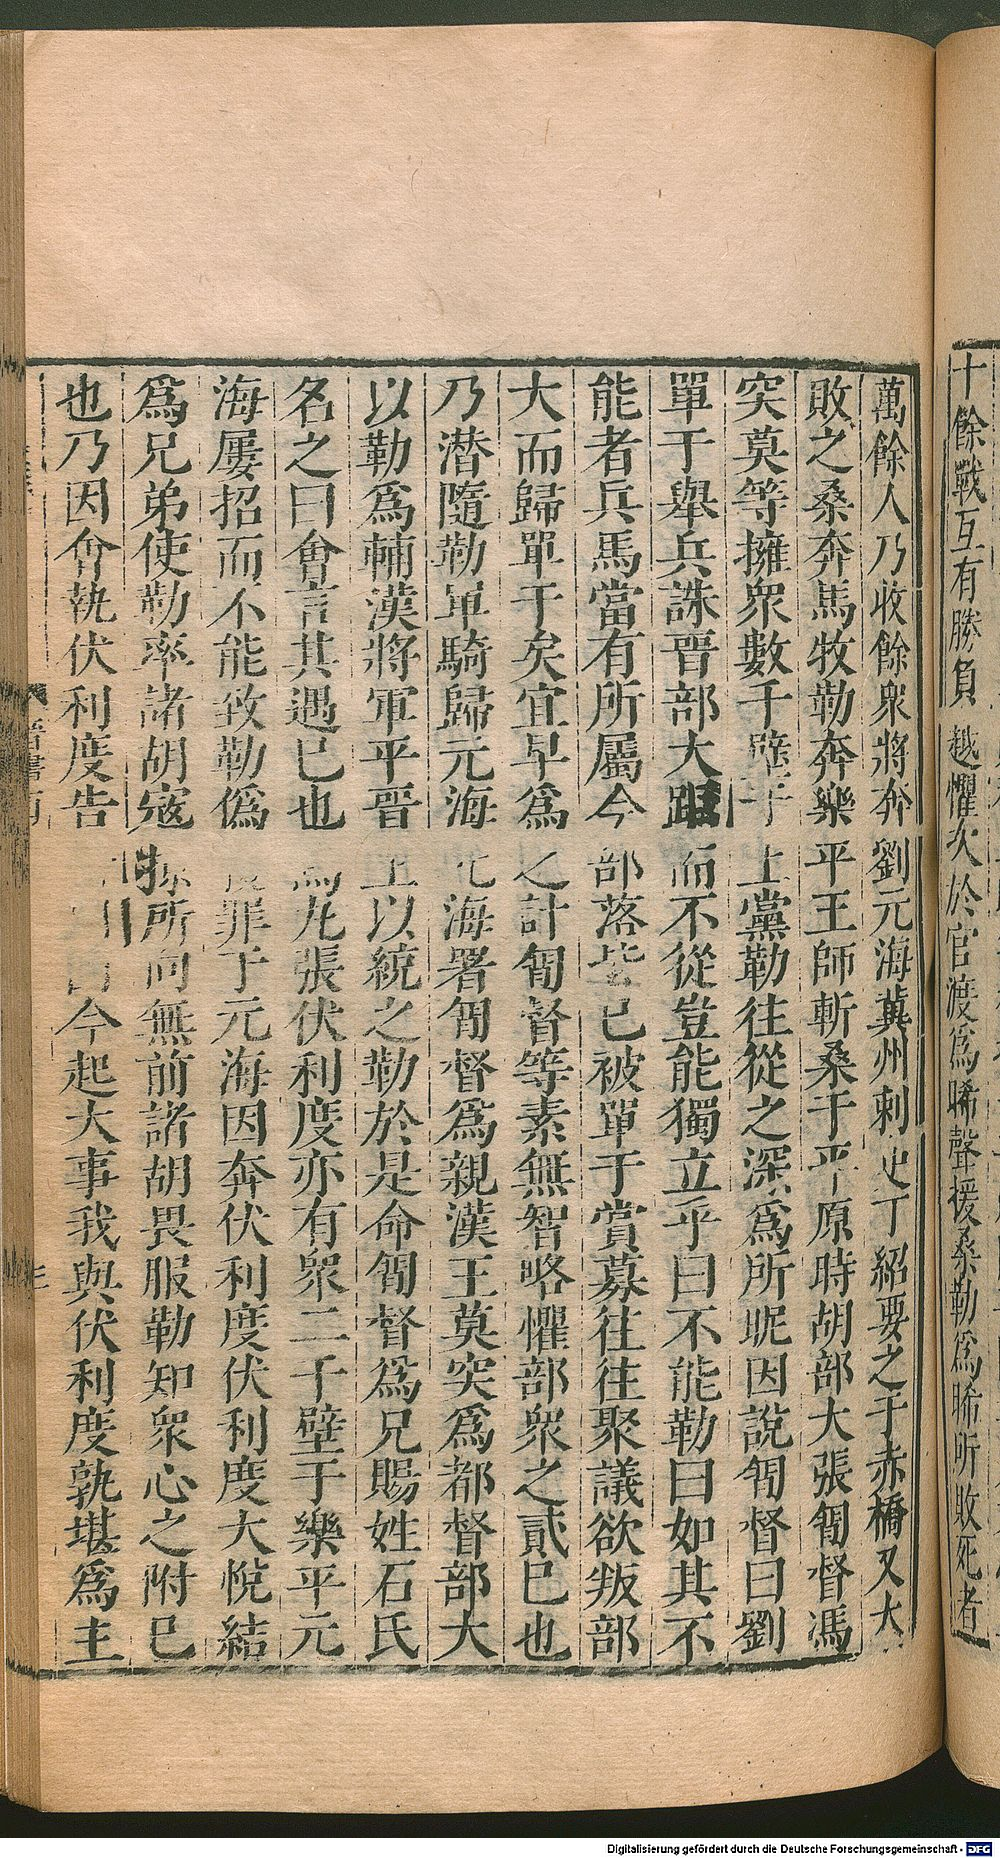 十餘戰互有勝負越懼次於官渡爲晞聲援桑勒爲晞所敗死者
萬餘人乃收餘衆將奔劉元海冀州刺史丁紹要之于赤橋又大
敗之桑奔馬牧勒奔樂平王師斬桑于平原時胡部大張㔨督馮
突莫等擁衆數千壁于上黨勒往從之深爲所昵因說㔨督曰劉
單于舉兵誅晉部大距而不從豈能獨立乎曰不能勒曰如其不
能者兵馬當有所屬今部落皆已被單于賞募往往聚議欲叛部
大而歸單于矣宜早爲之計㔨督等素無智略懼部衆之貳已也
乃潛隨勒單騎歸元海元海署㔨督爲親漢王莫突爲都督部大
以勒爲輔漢將軍平晉王以統之勒於是命㔨督爲兄賜姓石氏
名之曰會言其遇已也烏丸張伏利度亦有衆二千壁于樂平元
海屢招而不能致勒僞獲罪于元海因奔伏利度伏利度大悅結
爲兄弟使勒率諸胡寇掠所向無前諸胡畏服勒知衆心之附已
也乃因會執伏利度告 今起大事我與伏利度孰堪爲主
Digitalisierung gefördert durch die Deutsche Forschungsgemeinschaft - DFG